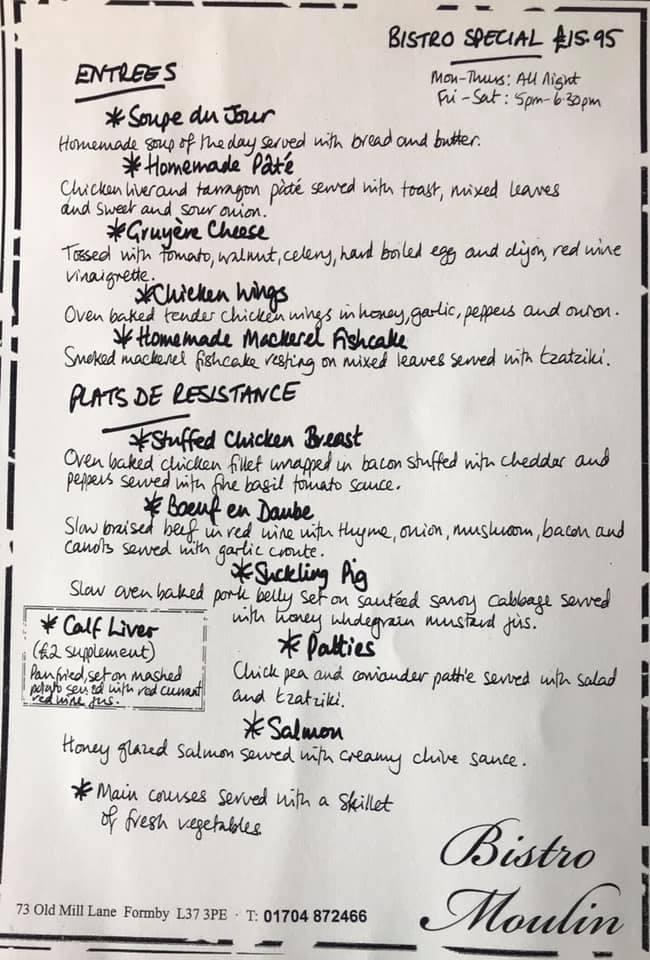 BISTRO SPECIAL £15.95
Mon-Thurs: All Night
Fri-Sat: 5pm-6.30pm
ENTREES
* Soupe du Jour
Homemade soup of the day served with bread and butter.
* Homemade Pâté
Chicken liver and tarragon pàté served with toast, mixed leaves
and sweet and sour onion.
* Gruyère Cheese
Tossed with tomato, walnut, celery, hard boiled egg and dijon, red wine
vinaigrette.
* Chicken Wings
Oven baked tender chicken wings in honey, garlic, peppers and onion.
* Homemade Mackerel Fishcake
Smoked mackerel fishcake resting on mixed leaves served with tzatziki.
PLATS DE RESISTANCE
* Stuffed Chicken Breast
Oven baked chicken fillet wrapped in bacon stuffed with cheddar and
peppers served with fine basil tomato sauce.
* Boeuf en Daube
Slow braised beef in red wine with thyme, onion, mushroom, bacon and
carrots served with garlic croute.
* Suckling Pig
Slow oven baked pork belly set on sautéed savoy cabbage served
with honey wholegrain mustard jus.
* Calf Liver
(£2 supplement)
Pan fried, set on mashed
potato served with red currant
red wine jus.
* Patties
Chick pea and coriander pattie served with salad
and tzatziki.
* Salmon
Honey glazed salmon served with creamy chive sauce.
* Main courses served with a skillet
of fresh vegetables
Bistro
Moulin
73 Old Mill Lane Formby L37 3PE · T: 01704 872466